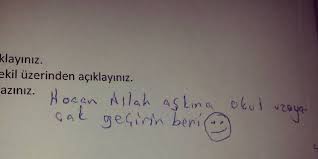 klayınız.
ekil üzerinden açıklayınız.
azınız.
Hocam Allah aşkına okul uzaya
cak geçirin beni